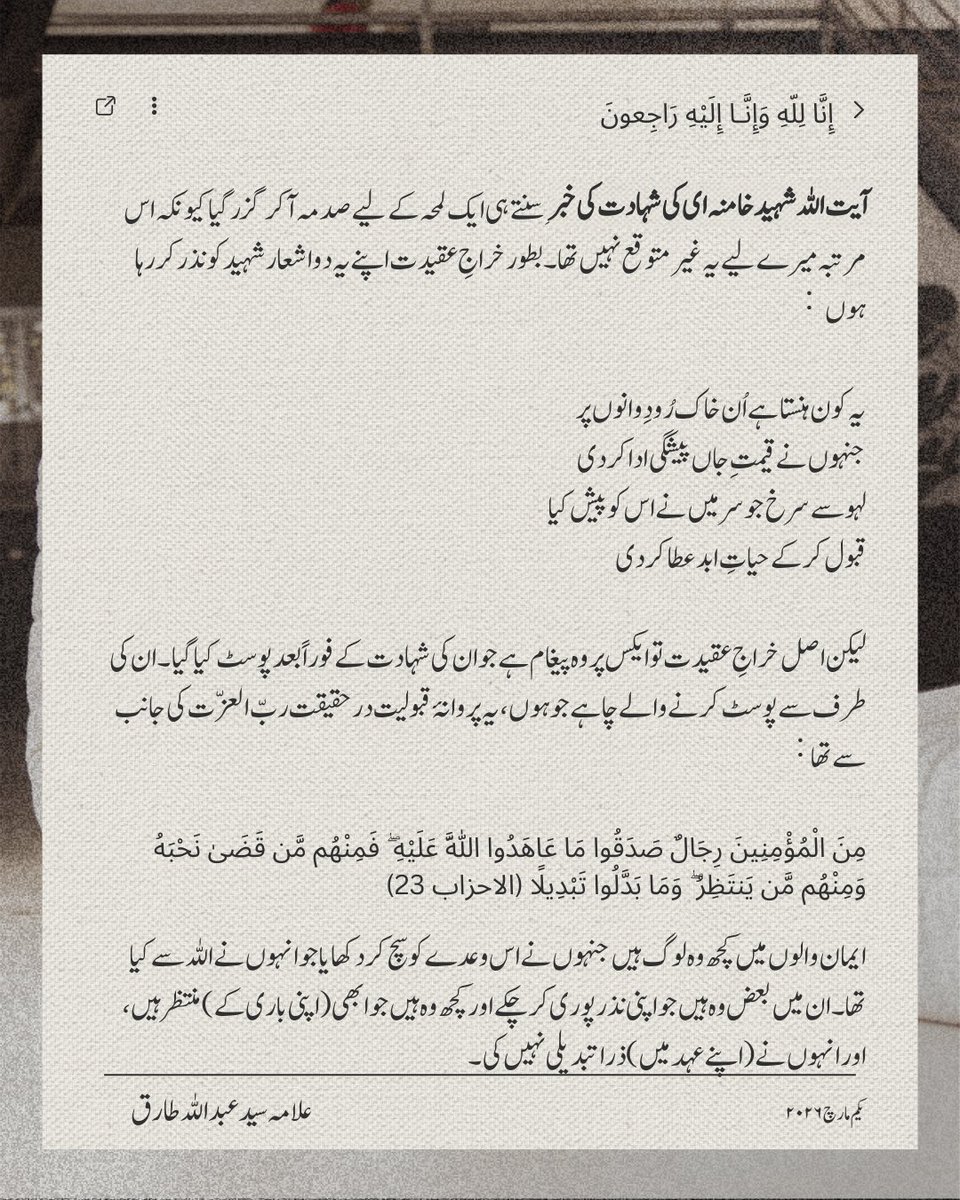 إِنَّا لِلّٰهِ وَإِنَّـا إِلَيْهِ رَاجِعونَ
آیت اللہ شہید خامنہ ای کی شہادت کی خبر سنتے ہی ایک لمحہ کے لیے صدمہ آکر گزر گیا کیونکہ اس
مرتبہ میرے لیے یہ غیر متوقع نہیں تھا۔ بطور خراجِ عقیدت اپنے یہ دو اشعار شہید کو نذر کر رہا
ہوں :
یہ کون ہنستا ہے اُن خاک رُو دِوانوں پر
جنہوں نے قیمتِ جاں پیشگی ادا کر دی
لہو سے سرخ جو سر میں نے اس کو پیش کیا
قبول کر کے حیاتِ ابد عطا کر دی
لیکن اصل خراجِ عقیدت تو ایکس پر وہ پیغام ہے جو ان کی شہادت کے فوراً بعد پوسٹ کیا گیا۔ ان کی
طرف سے پوسٹ کرنے والے چاہے جو ہوں، یہ پروانۂ قبولیت در حقیقت ربّ العزّت کی جانب
سے تھا :
مِنَ الْمُؤْمِنِينَ رِجَالٌ صَدَقُوا مَا عَاهَدُوا اللَّهَ عَلَيْهِ ۖ فَمِنْهُم مَّن قَضَىٰ نَحْبَهُ
وَمِنْهُم مَّن يَنتَظِرُ ۖ وَمَا بَدَّلُوا تَبْدِيلًا (الاحزاب 23)
ایمان والوں میں کچھ وہ لوگ ہیں جنہوں نے اس وعدے کو سچ کر دکھایا جو انہوں نے اللہ سے کیا
تھا۔ ان میں بعض وہ ہیں جو اپنی نذر پوری کر چکے اور کچھ وہ ہیں جو ابھی (اپنی باری کے) منتظر ہیں،
اور انہوں نے (اپنے عہد میں) ذرا تبدیلی نہیں کی۔
یکم مارچ ۲۰۲۶
علامہ سید عبداللہ طارق